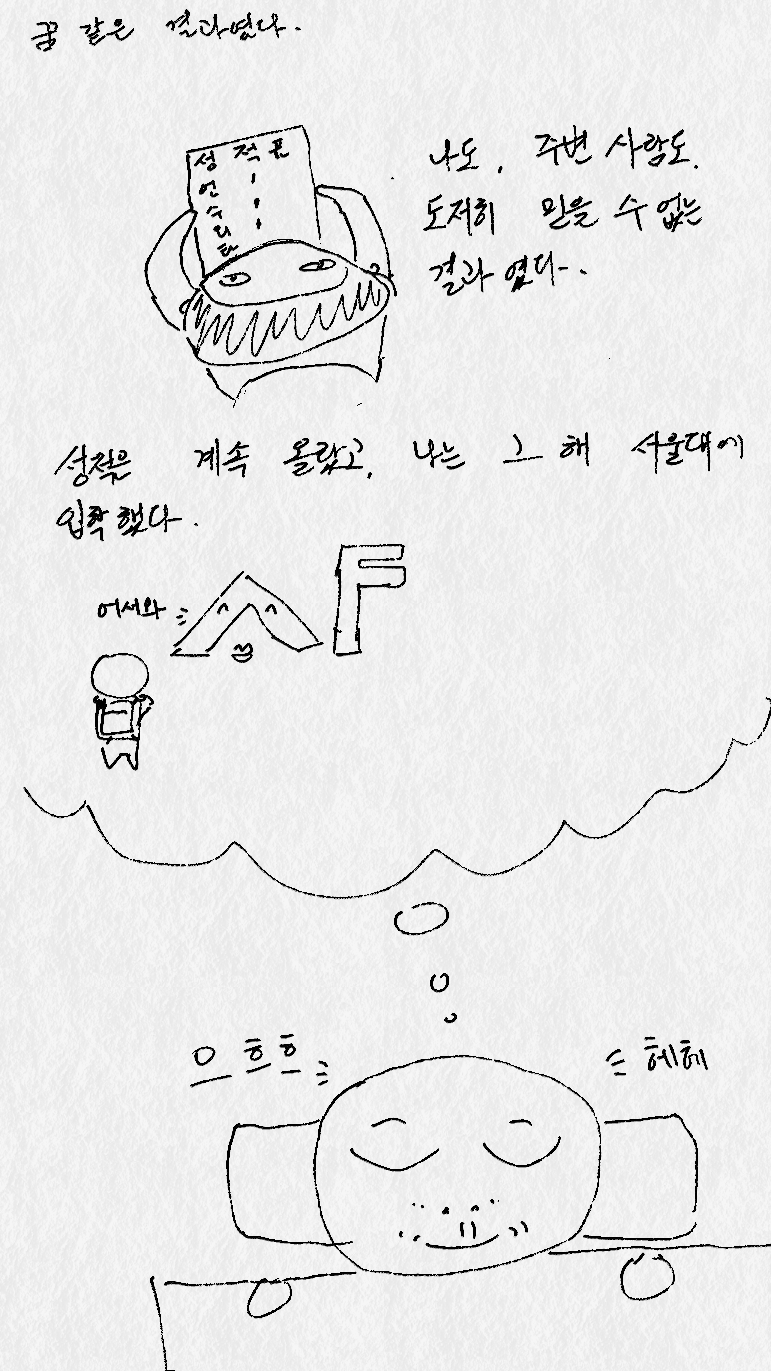 꿈 같은 결과였다.
성적표
언 1
수 1
리 1
탐
나도, 주변 사람도,
도저히 믿을 수 없는
결과였다.
성적은 계속 올랐고, 나는 그 해 서울대에
입학했다.
어서와
으흐흐
헤헤